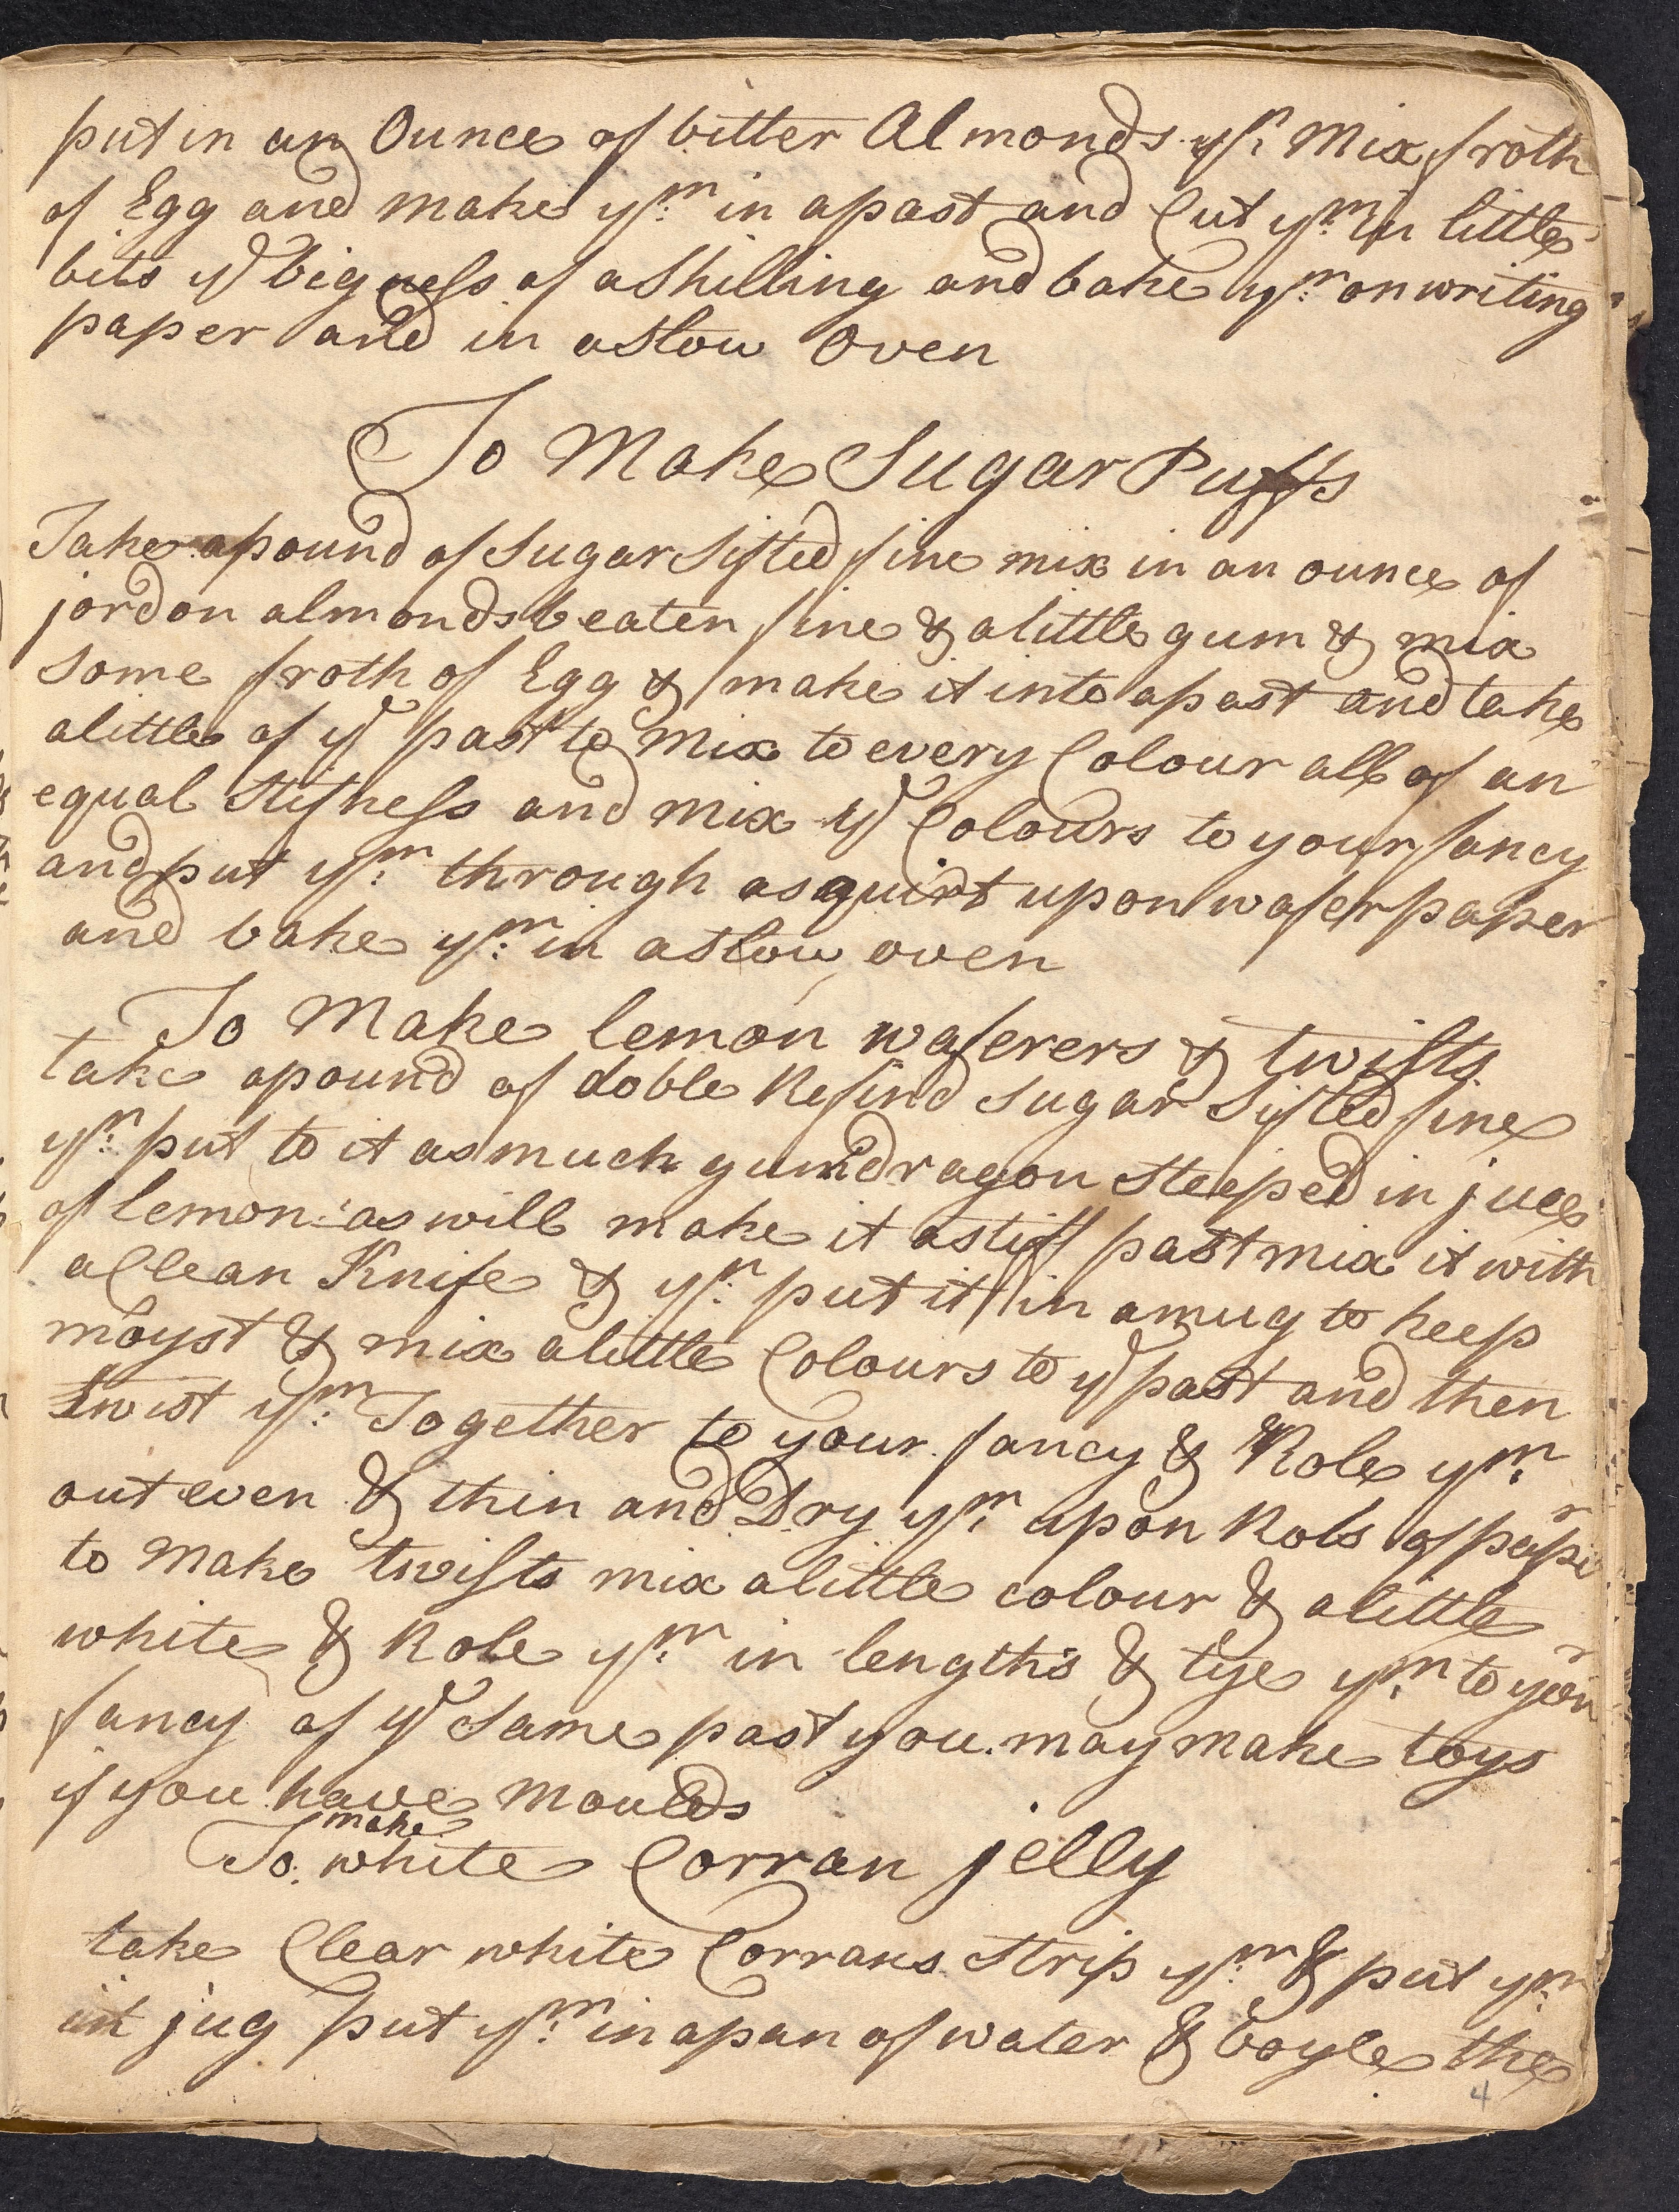 put in an Ounce of bitter Almonds yn: Mix froth
of Egg and make ym: in a past and Cut ym: in little
bits ye bigness of a Shilling and bake ym: on writing
paper and in a slow Oven
To Make Sugar Puffs
Take a pound of Sugar Sifted fine mix in an ounce of
jordon almonds beaten fine & a little gum & mix
some froth of Egg & make it into a past and take
a little of ye past to Mix to every Colour all of an
equal Stifness and mix ye Colours to your fancy
and put ym: through a squirt upon wafer paper
and bake ym: in a slow oven
To Make lemon waferers & twists
take a pound of doble Refind sugar Sifted fine
yn: put to it as much gumdragon Steeped in juce
of lemon: as will make it a stiff past mix it with
a Clean Knife & yn: put it in a mug to keep
moyst & mix a little Colours to ye past and then
twist ym: Together to your fancy & Role ym:
out even & thin and Dry ym: upon Rols of paper
to Make twists mix a little colour & a little
white & Role ym: in lengths & tye ym: to your
fancy of ye Same past you may make toys
if you have Moulds
To make white Corran jelly
take Clear white Corrans Strip ym: & put ym:
in jug put ym: in a pan of water & boyle the
4